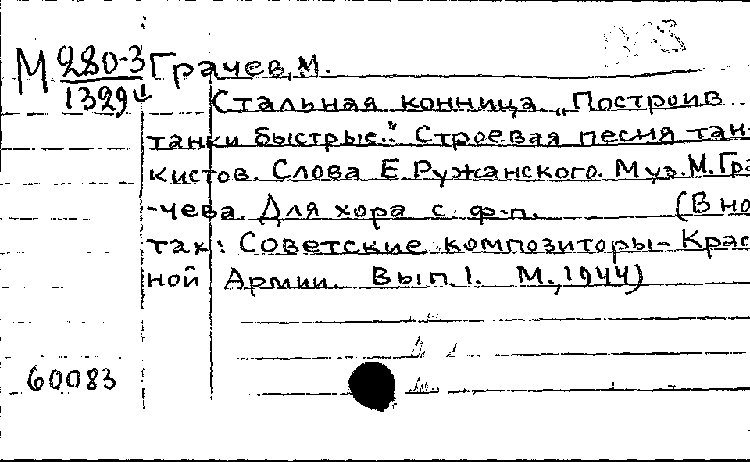 М 280-3 Грачев, М.
1329ч
Стальная конница. „Построив
танки быстрые.." Строевая песня тан-
кистов. Слова Е. Ружанского. Муз. М. Гра
-чева. Для хора с ф-п. (В но
тах: Советские композиторы - Крас
ной Армии. Вып. 1. М., 1944)
60083